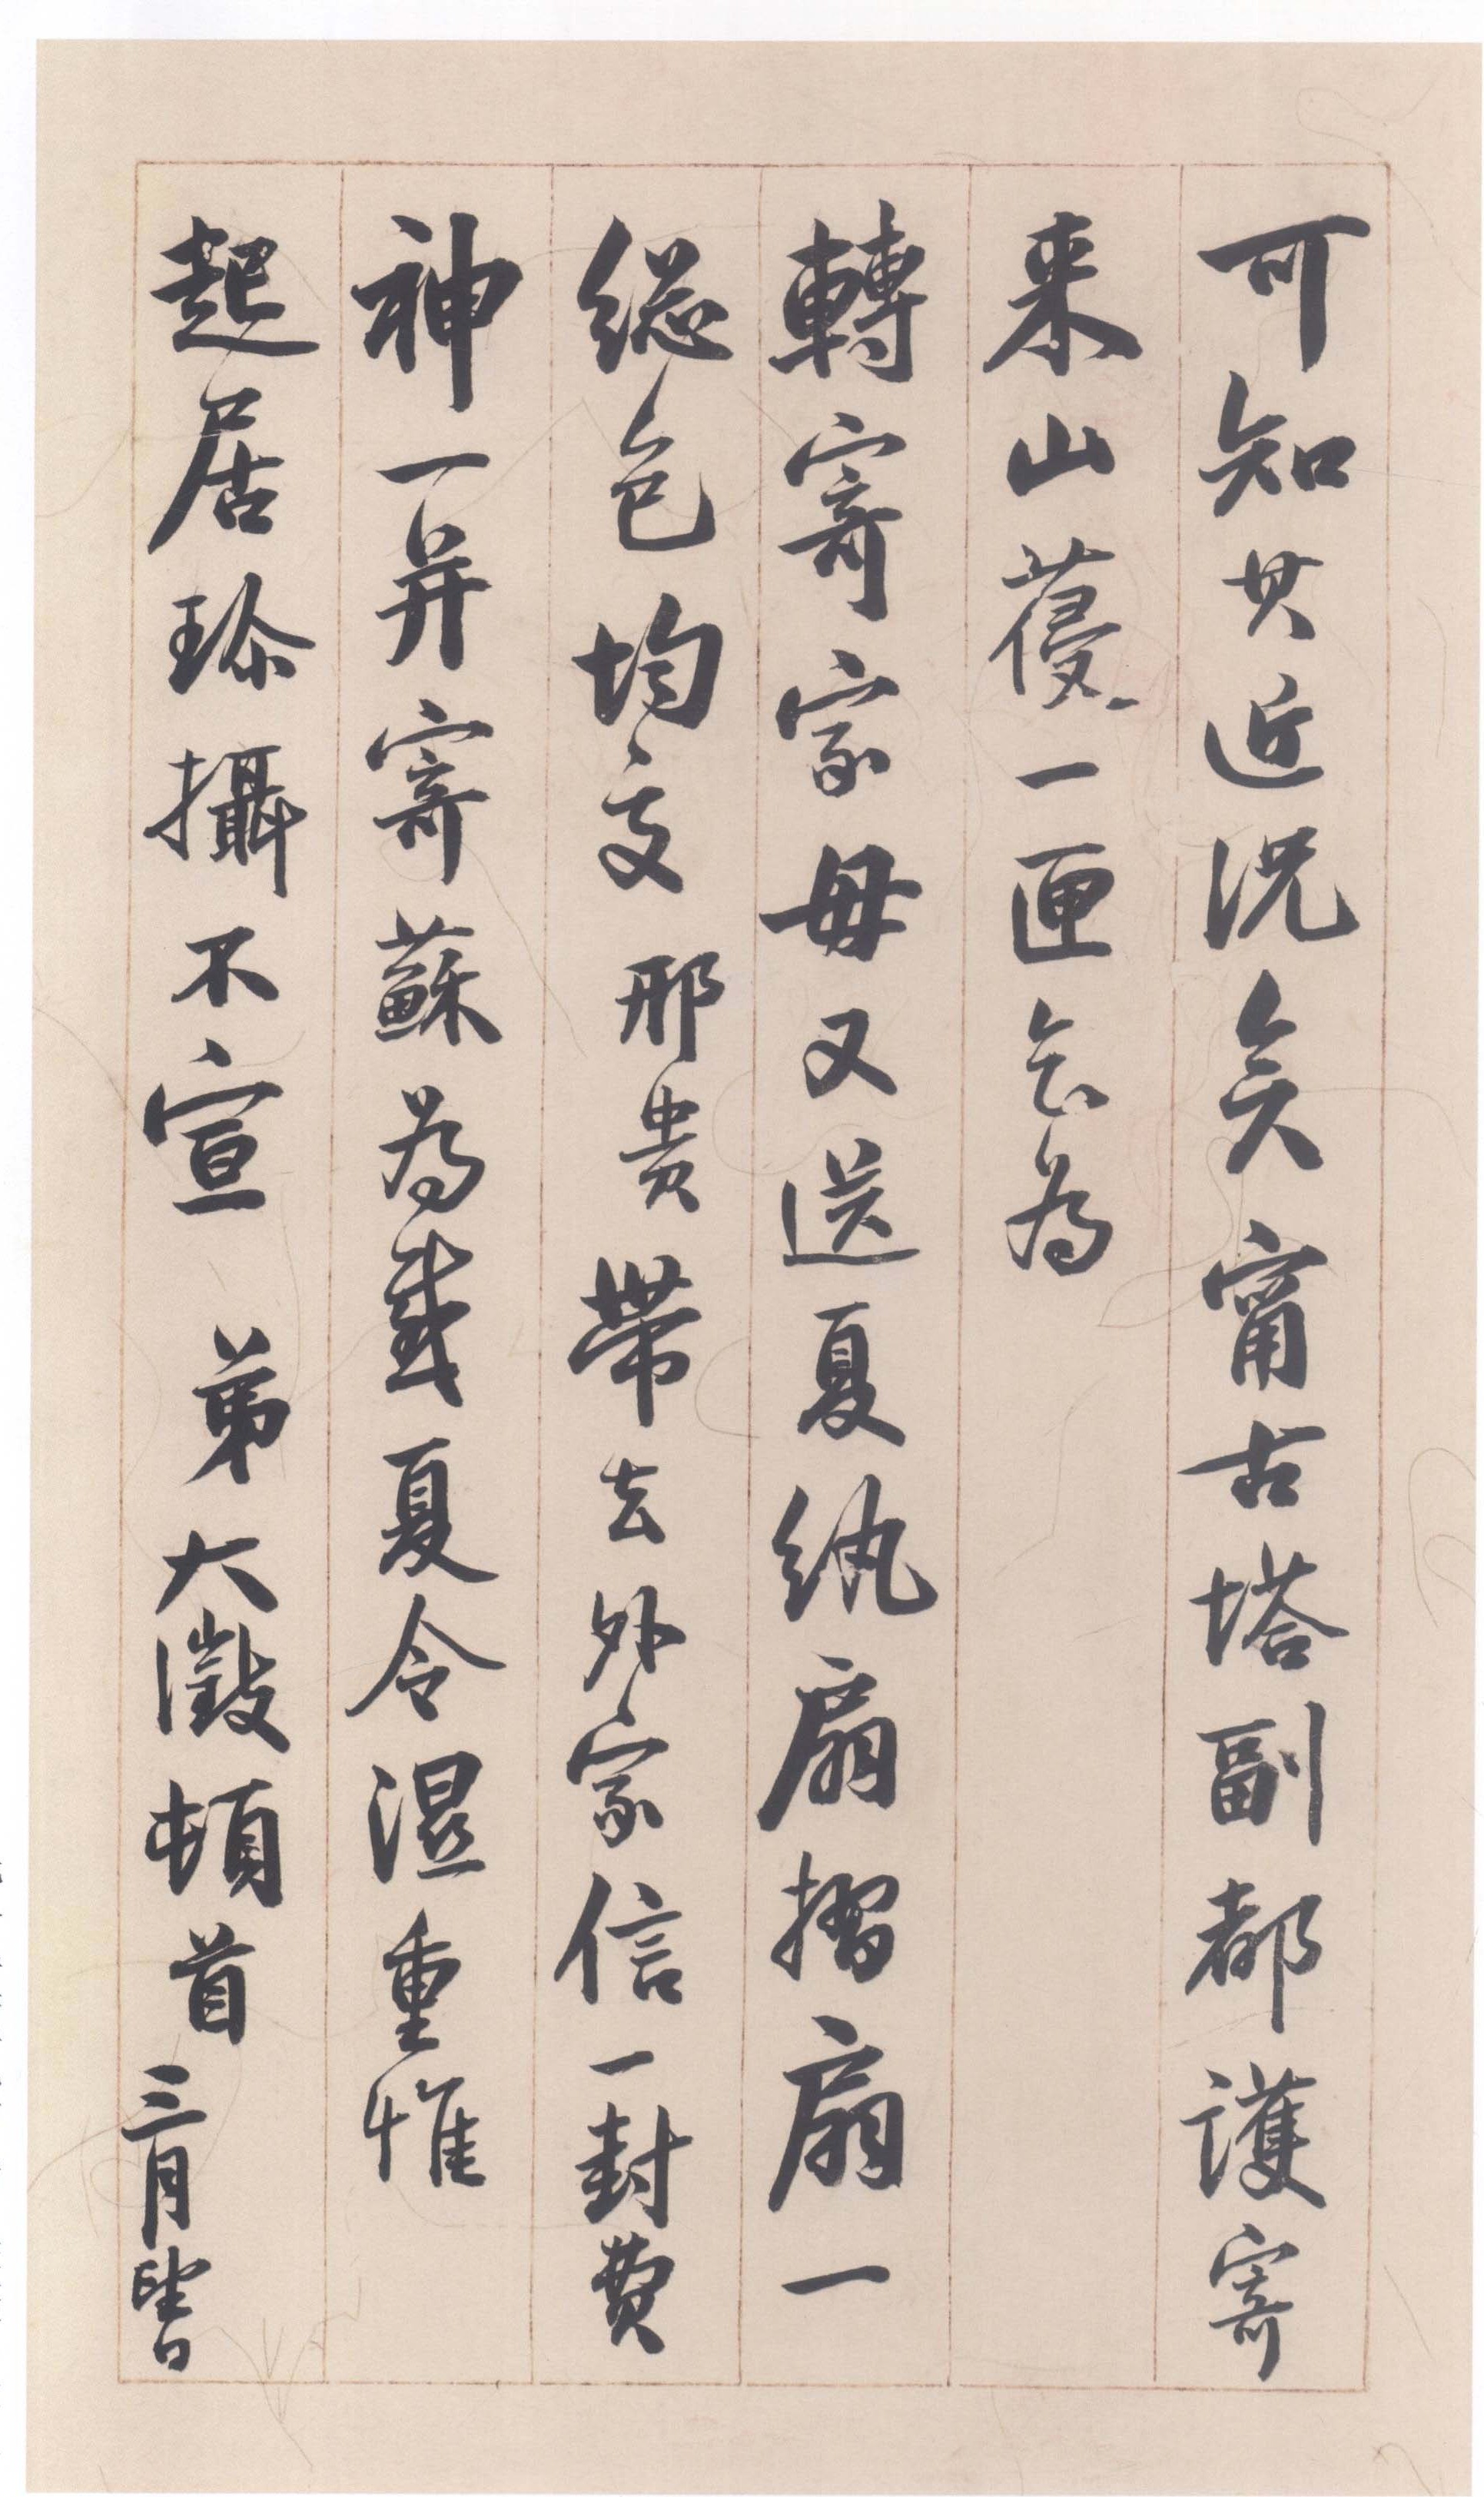 可知其近況矣甯古塔副都護寄
来山葠一匣乞為
轉寄家母又送夏紈扇摺扇一
総包均交邢貴帶去外家信一封費
神一并寄蘇為感夏令濕重惟
起居珍攝不宣 弟大澂頓首 三月望日